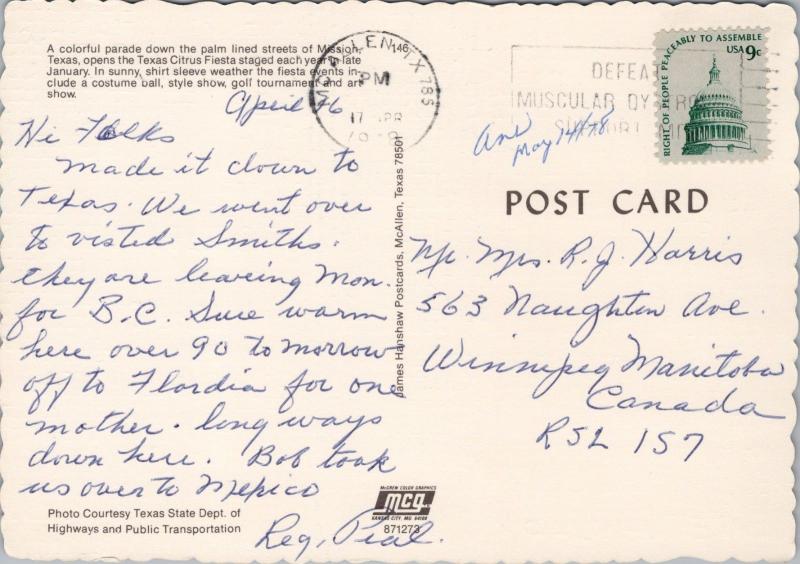 A colorful parade down the palm lined streets of Mission,
Texas, opens the Texas Citrus Fiesta staged each year in late
January. In sunny, shirt sleeve weather the fiesta events in-
clude a costume ball, style show, golf tournament and art
show.
146
McALLEN, TX 785
PM
17 APR
DEFEAT
MUSCULAR DYSTROPHY
SUPPORT
RIGHT OF PEOPLE PEACEABLY TO ASSEMBLE
USA 9c
April 16
Hi Folks
made it down to
Texas. We went over
to visted Smiths.
they are leaving Mon.
for B.C. Sure warm
here over 90 to morrow
off to Flordia for one
mother. long ways
down here. Bob took
us over to Mexico
Reg, Pial.
Photo Courtesy Texas State Dept. of
Highways and Public Transportation
James Hanshaw Postcards, McAllen, Texas 78501
McGREW COLOR GRAPHICS
mcg
KANSAS CITY, MO 64108
871273
May 14/78
POST CARD
Mr. Mrs. R. J. Harris
563 Naughton Ave.
Winnipeg Manitoba
Canada
R5L 1S7